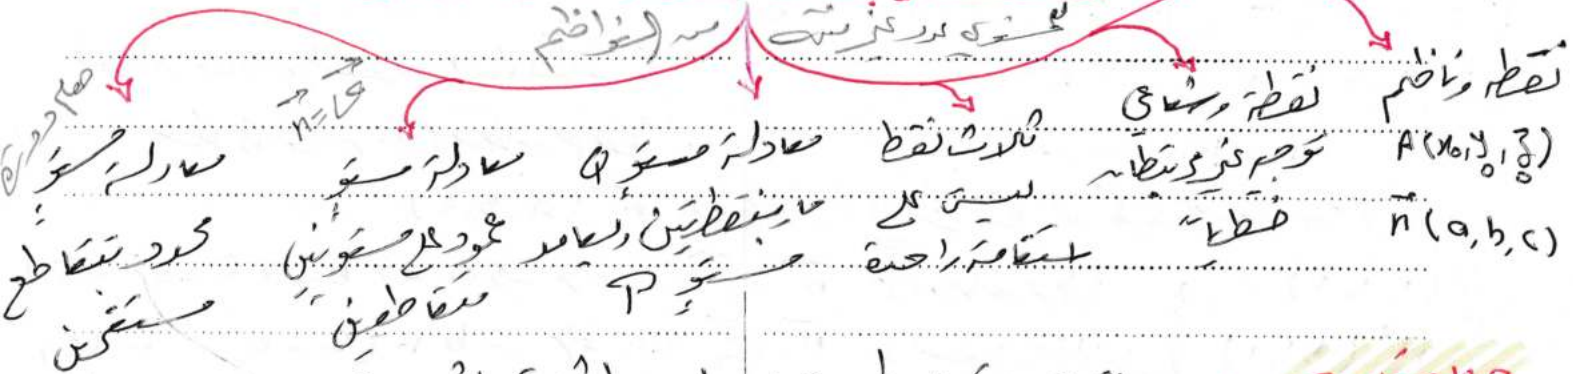 لمستوي عدد غير منته من النواظم
نقطة وناظم
A(x₀, y₀, z₀)
n⃗(a, b, c)
نقطة وشعاعي
توجيه غير مرتبطان
خطياً
ثلاث نقط
ليست على
استقامة واحدة
معادلة مستوٍ Q
مار بنقطتين ويعامد
مستوٍ P
n⃗ =
معادلة مستوٍ
عمودي على مستويين
متقاطعين
هام دورة
معادلة مستوٍ
محدد بتقاطع
مستقيمين